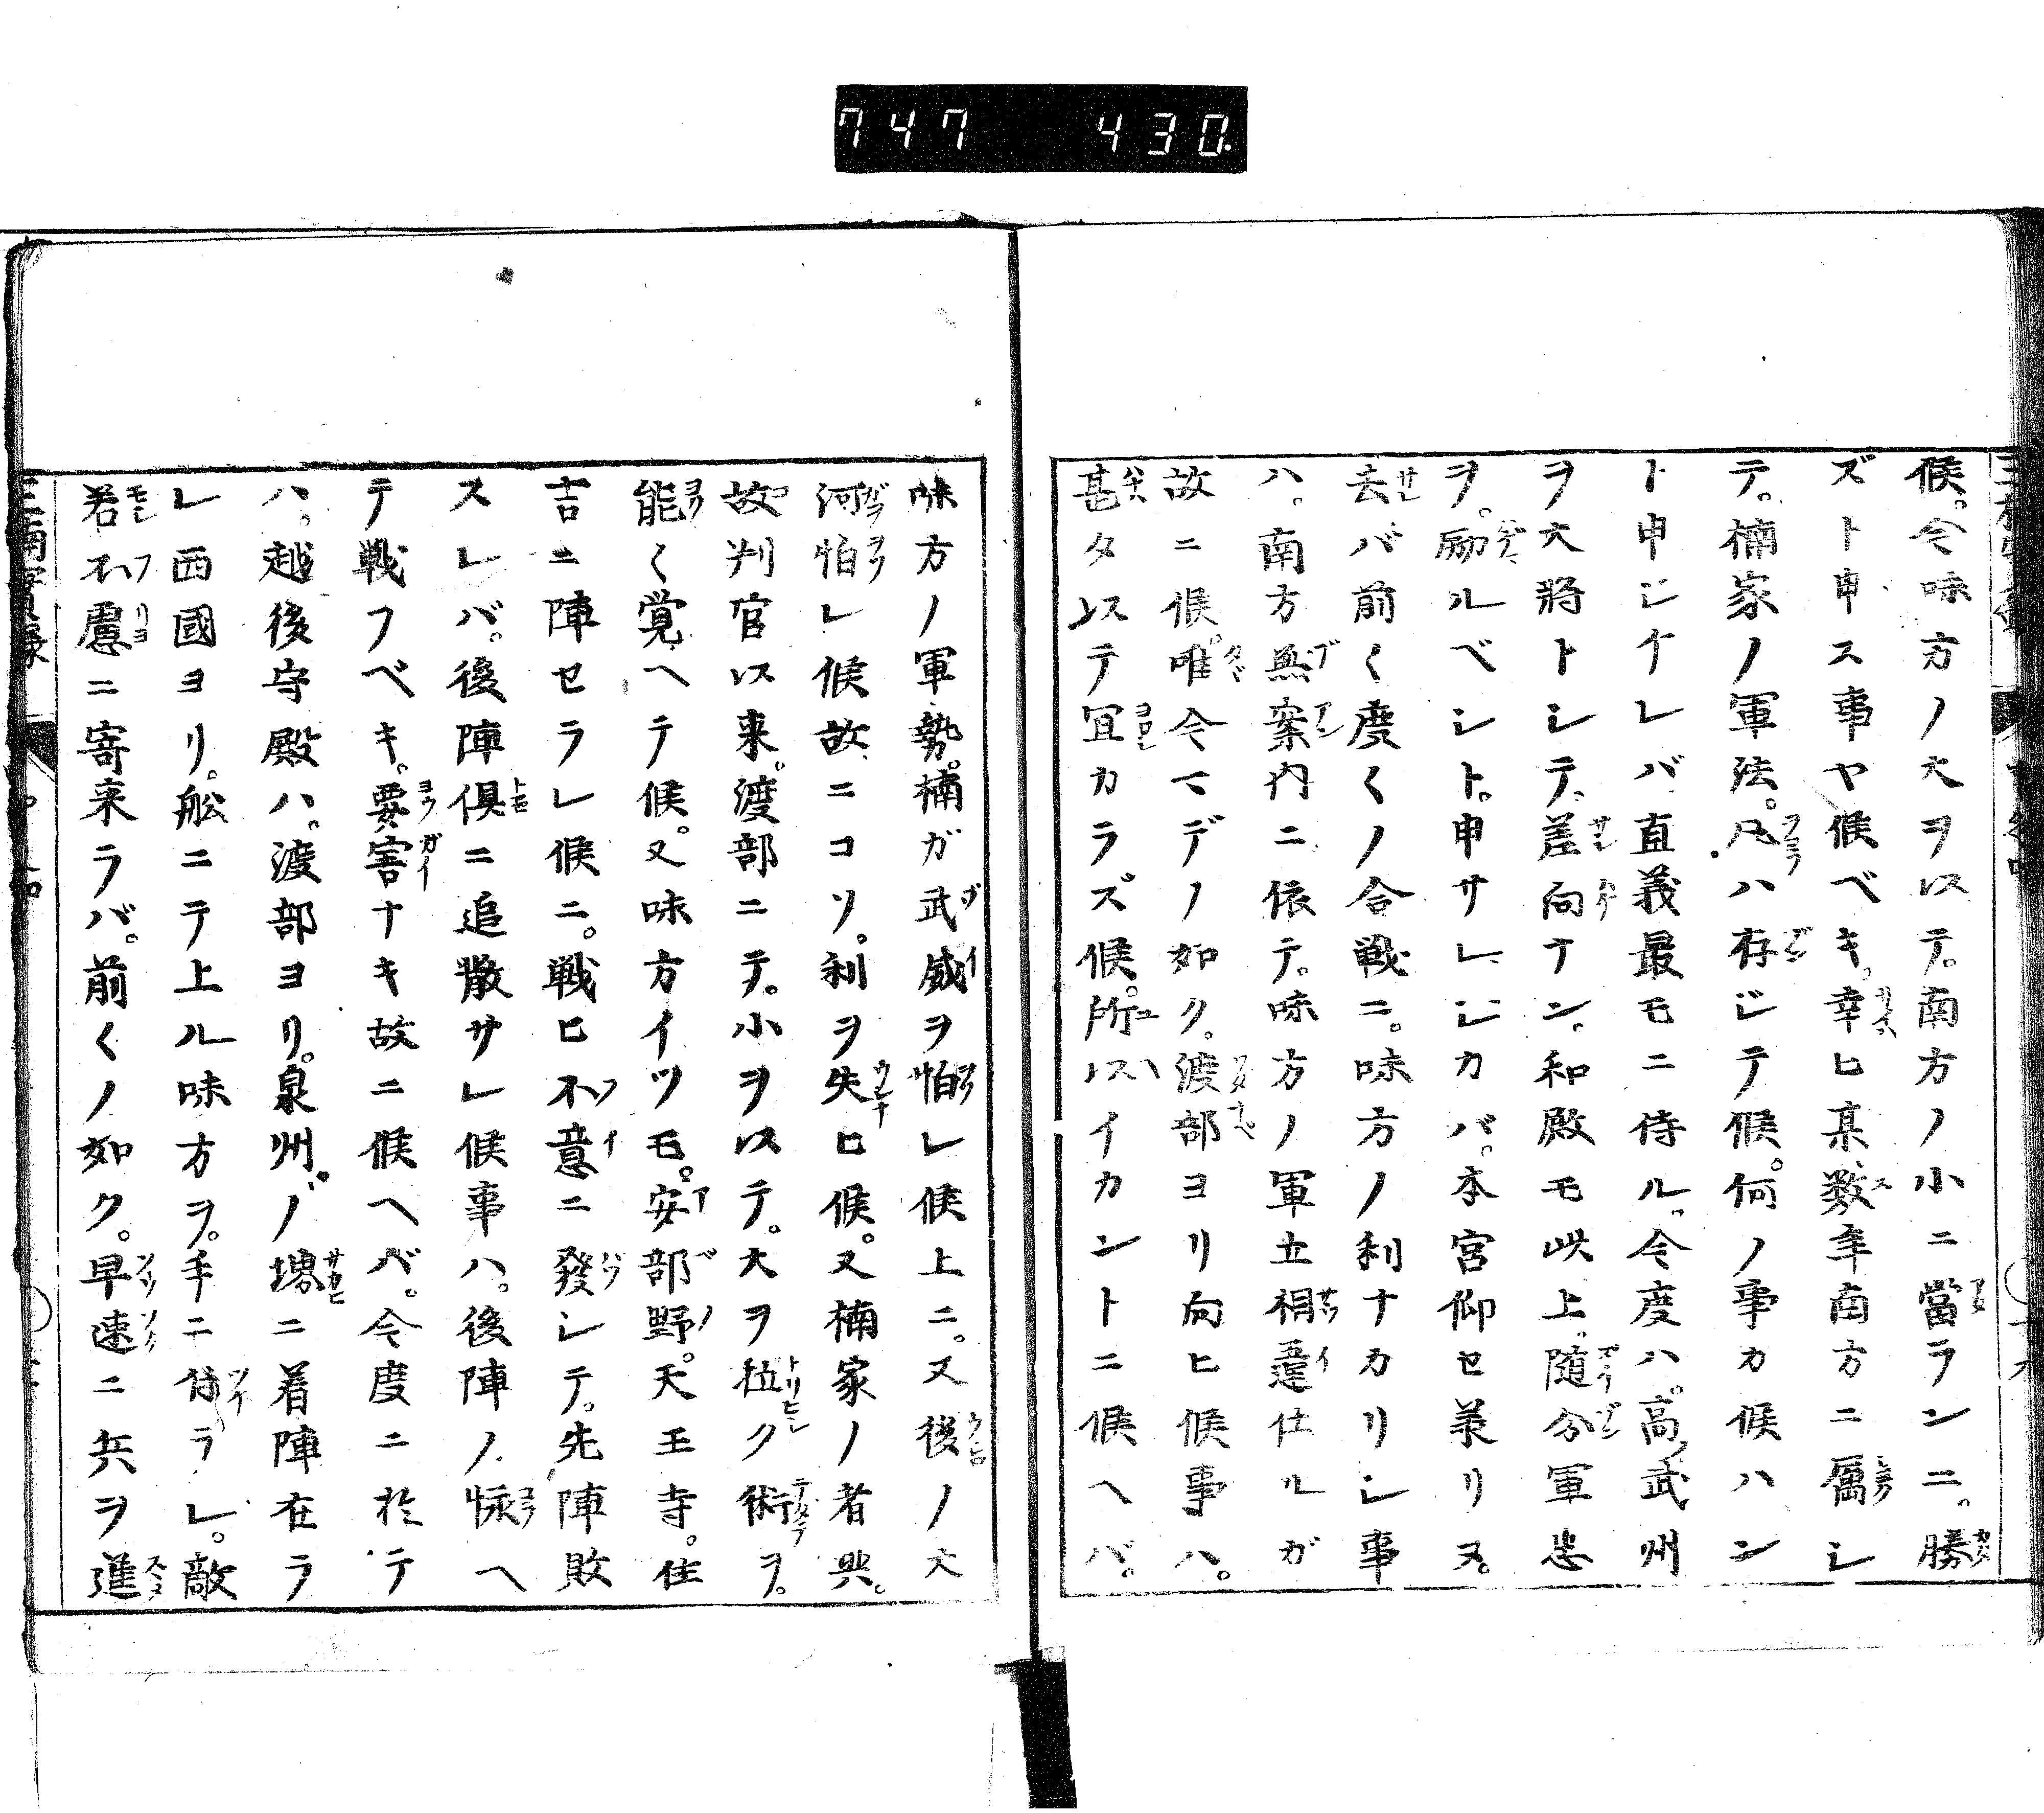 747 430.
候。今味方ノ大ヲ以テ。南方ノ小ニ當ランニ。勝
ズト申ス事ヤ候ベキ。幸ヒ某、数年南方ニ属シ
テ。楠家ノ軍法。凡ハ存ジテ候。何ノ事カ候ハン
ト申シケレバ直義最モニ侍ル。今度ハ。高武州
ヲ大將トシテ。差向ケン。和殿モ此上。随分軍忠
ヲ。励ルベシト。申サレシカバ。本宮仰セ羕リヌ。
去バ前〱度〱ノ合戦ニ。味方ノ利ナカリシ事
ハ。南方無案内ニ依テ。味方ノ軍立相違仕ルガ
故ニ候。唯今マデノ如ク。渡部ヨリ向ヒ候事ハ。
甚タ以テ宜カラズ候。所以イカントニ候ヘバ。
味方ノ軍勢。楠ガ武威ヲ怕レ候上ニ。又後ノ大
河怕レ候故ニコソ。利ヲ失ヒ候。又楠家ノ者共。
故判官以来。渡部ニテ。小ヲ以テ。大ヲ拉ク術ヲ。
能〱覚ヘテ候。又味方イツモ。安部野。天王寺。住
吉ニ陣セラレ候ニ。戦ヒ不意ニ發シテ。先陣敗
スレバ。後陣倶ニ追散サレ候事ハ。後陣ノ怺ヘ
テ戦フベキ。要害ナキ故ニ候ヘバ。今度ニ於テ
ハ。越後守殿ハ。渡部ヨリ。泉州ノ堺ニ着陣在ラ
レ西國ヨリ。舩ニテ上ル味方ヲ。手ニ付ラレ。敵
若不慮ニ寄来ラバ。前〱ノ如ク。早速ニ兵ヲ進